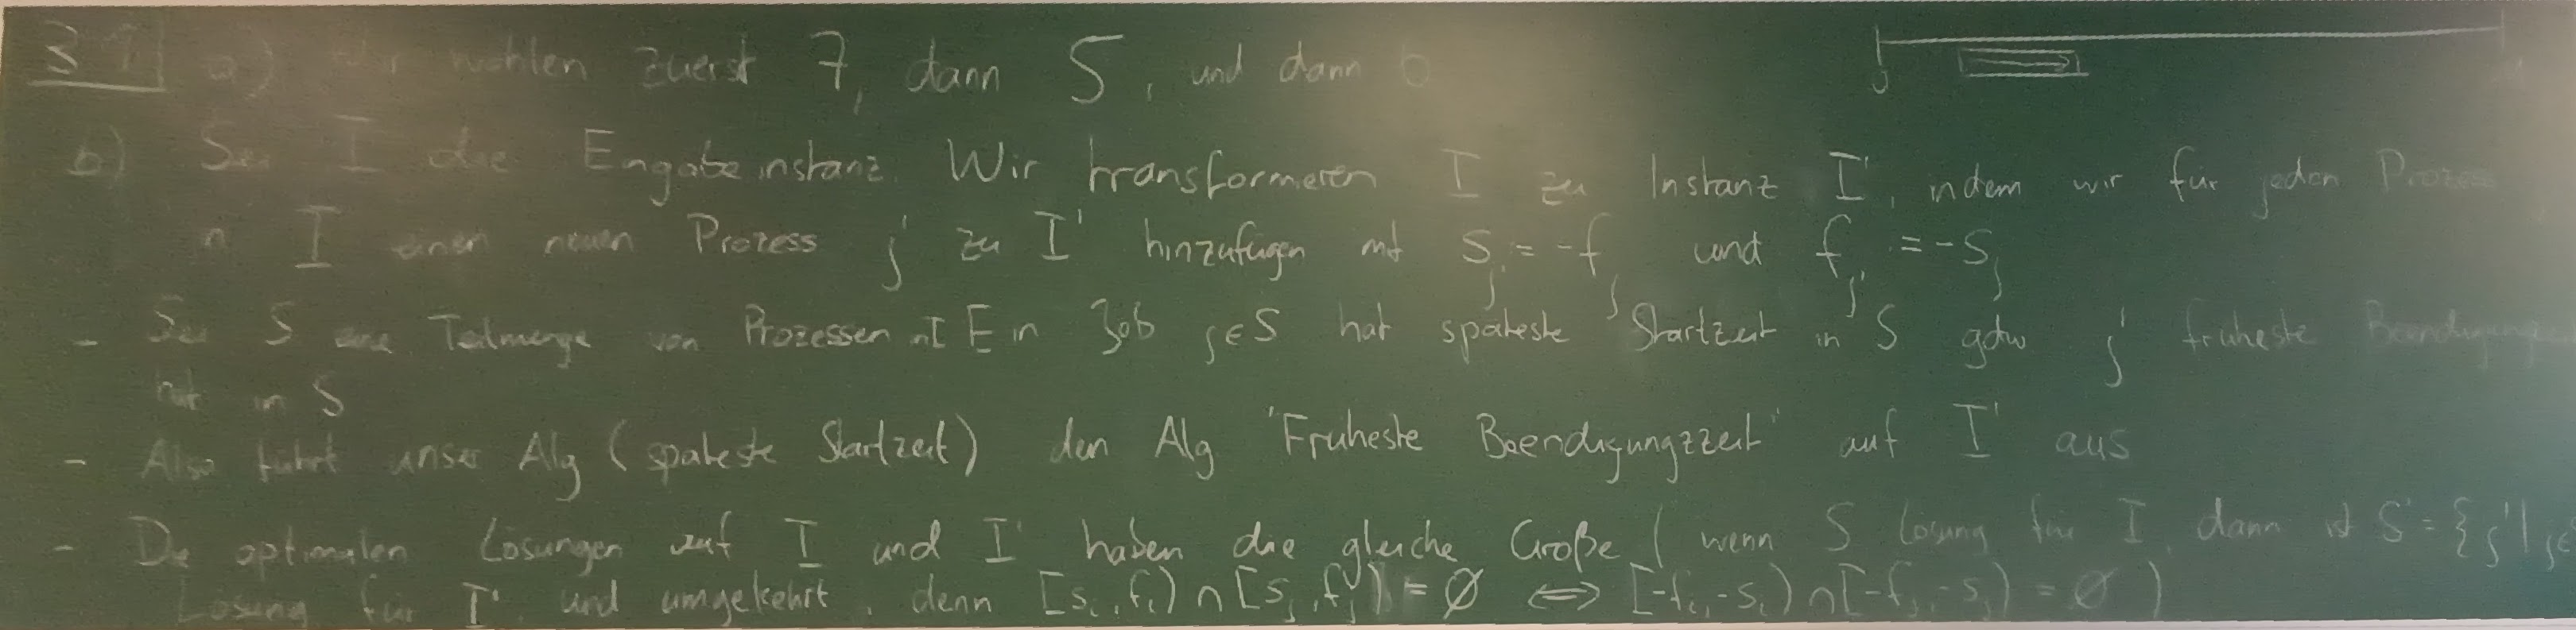 a) Wir wählen zuerst 7, dann 5, und dann 6
0
b) Sei I die Eingabeinstanz. Wir transformieren I zu Instanz I', indem wir für jeden Prozess
in I einen neuen Prozess j' zu I' hinzufügen mit s_j' := -f_j und f_j' := -s_j
- Sei S eine Teilmenge von Prozessen in I Ein Job j∈S hat späteste Startzeit in S gdw j' früheste
hat in S
- Also führt unser Alg (späteste Startzeit) den Alg "Früheste Beendigungszeit" auf I' aus
- Die optimalen Lösungen auf I und I' haben die gleiche Größe ( wenn S Lösung für I, dann ist S' = {j' | j∈
Lösung für I' und umgekehrt, denn [s_i, f_i) ∩ [s_j, f_j) = ∅ ⟺ [-f_i, -s_i) ∩ [-f_j, -s_j) = ∅ )